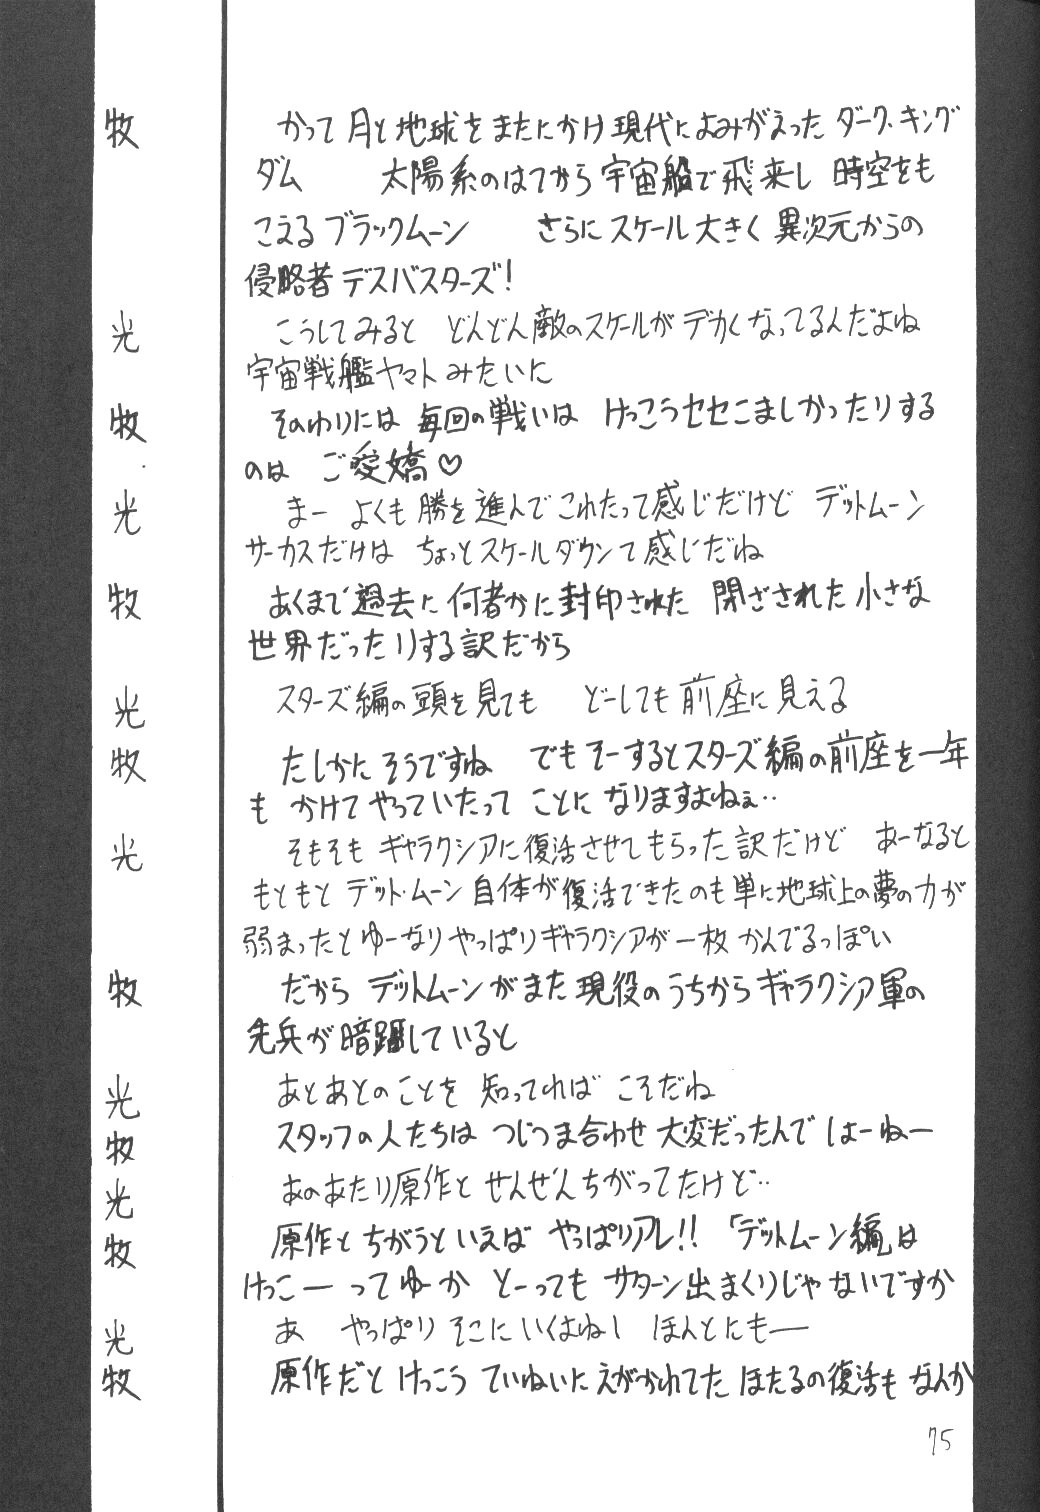 牧 かって月と地球をまたにかけ現代によみがえったダーク・キング
ダム 太陽系のはてから宇宙船で飛来し 時空をも
こえるブラックムーン さらにスケール大きく異次元からの
侵略者デスバスターズ!
光 こうしてみると どんどん敵のスケールがデカくなってるんだよね
宇宙戦艦ヤマトみたいに
牧 そのわりには 毎回の戦いは けっこうセセこましかったりする
のは ご愛嬌♡
光 まー よくも勝を進んでこれたって感じだけど デットムーン
サーカスだけは ちょっとスケールダウンて感じだね
牧 あくまで過去に何者かに封印された 閉ざされた小さな
世界だったりする訳だから
光 スターズ編の頭を見ても どーしても前座に見える
牧 たしかにそうですね でもそーするとスターズ編の前座を一年
も かけてやっていたって ことになりますよねぇ‥
光 そもそも ギャラクシアに復活させてもらった訳だけど あーなると
もともと デット・ムーン自体が復活できたのも単に地球上の夢の力が
弱まったとゆーなり やっぱりギャラクシアが一枚かんでるっぽい
牧 だから デットムーンがまた現役のうちからギャラクシア軍の
先兵が暗躍していると
光 あとあとのことを 知ってればこそだね
牧 スタッフの人たちは つじつま合わせ大変だったんでしょーねー
光 あのあたり原作とぜんぜんちがってたけど‥
牧 原作とちがうといえば やっぱりアレ!!「デットムーン編」は
けっこーってゆーか とーってもサターン出まくりじゃないですか
光 あ やっぱり そこにいくよねー ほんとにもー
牧 原作だと けっこう ていねいにえがかれてたほたるの復活も なんか
75